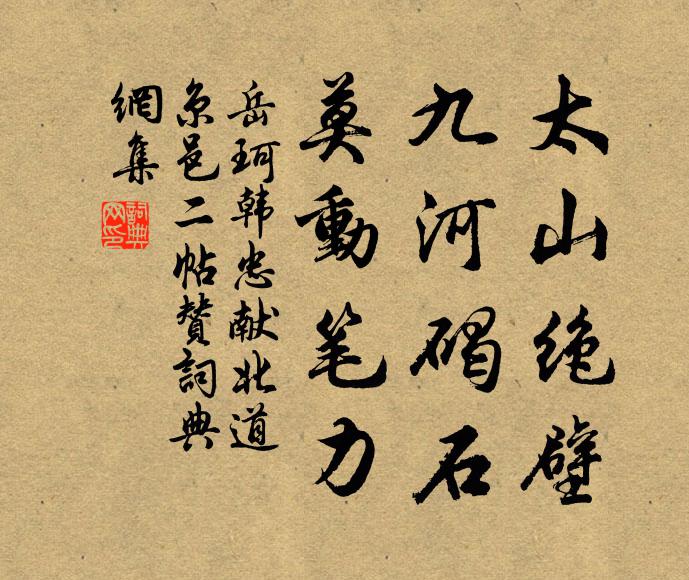 太山绝壁
九河碣石
莫動笔力
岳珂韩忠献北道
京邑二帖赞詞典
網集
詞典网印